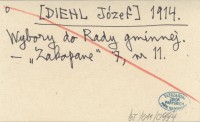 [DIEHL Józef] 1914.
Wybory do Rady gminnej.
– „Zakopane" 7, nr 11.